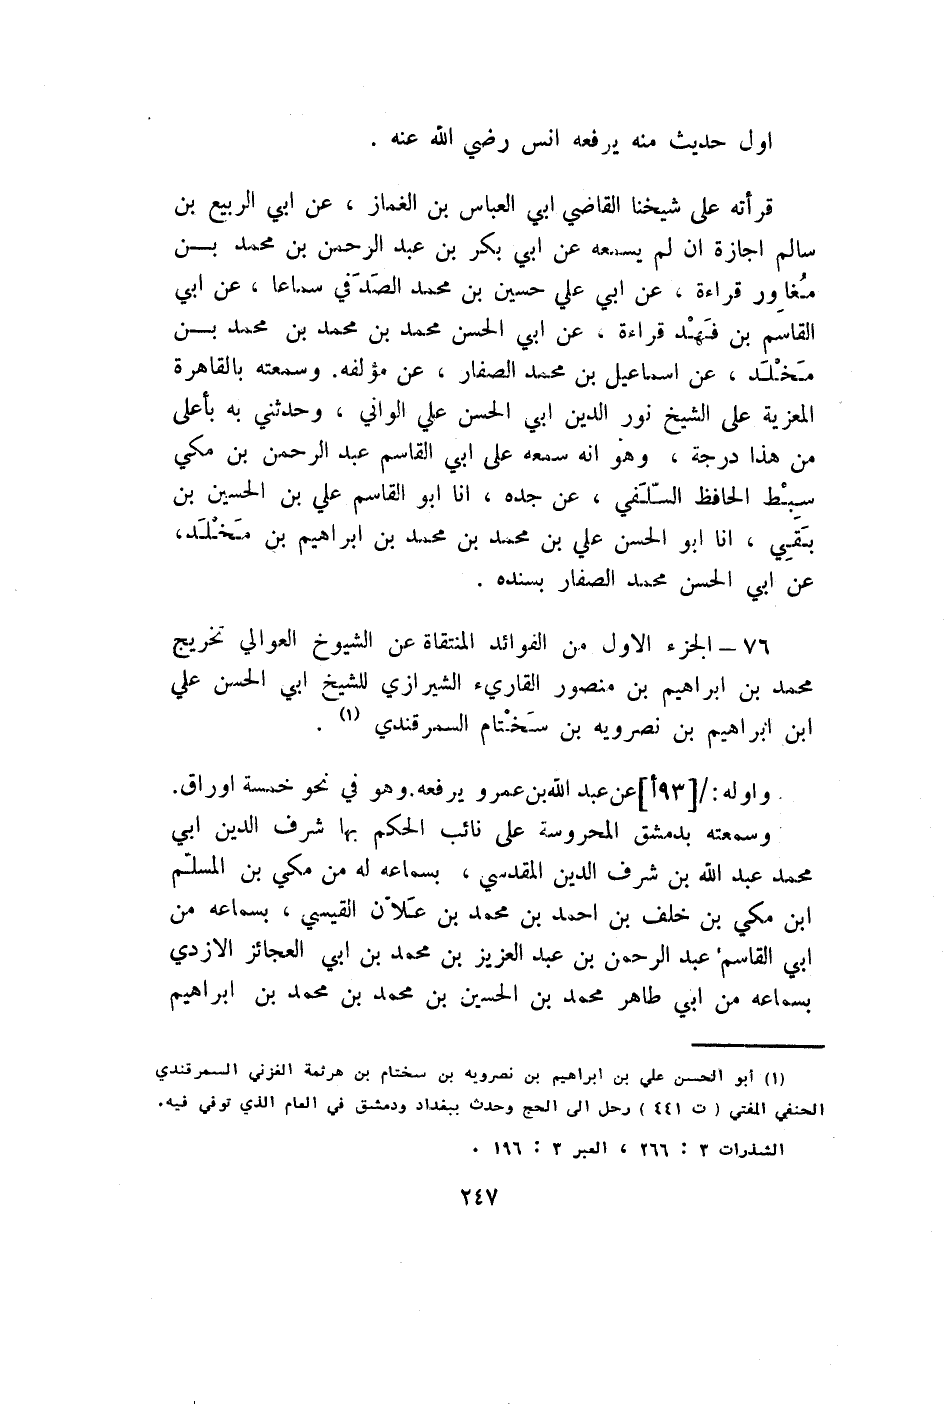 اول حديث منه يرفعه انس رضي الله عنه .
قرأته على شيخنا القاضي ابي العباس بن الغماز ، عن ابي الربيع بن
سالم اجازة ان لم يسمعه عن ابي بكر بن عبد الرحمن بن محمد بـــن
مُغاوِر قراءة ، عن ابي علي حسين بن محمد الصَدَفي سماعا ، عن ابي
القاسم بن فَهْد قراءة ، عن ابي الحسن محمد بن محمد بن محمد بـــن
مَخْلَد ، عن اسماعيل بن محمد الصفار ، عن مؤلفه. وسمعته بالقاهرة
المعزية على الشيخ نور الدين ابي الحسن علي الواني ، وحدثني به بأعلى
من هذا درجة ، وهو انه سمعه على ابي القاسم عبد الرحمن بن مكي
سِبْط الحافظ السّلَفي ، عن جده ، انا ابو القاسم علي بن الحسين بن
بَقِي ، انا ابو الحسن علي بن محمد بن محمد بن ابراهيم بن مَخْلَد،
عن ابي الحسن محمد الصفار بسنده .
٧٦ – الجزء الاول من الفوائد المنتقاة عن الشيوخ العوالي تخريج
محمد بن ابراهيم بن منصور القاريء الشيرازي للشيخ ابي الحسن علي
ابن ابراهيم بن نصرويه بن سَخْتام السمرقندي (١) .
واوله: /[٩٣أ] عن عبد الله بن عمرو يرفعه. وهو في نحو خمسة اوراق.
وسمعته بدمشق المحروسة على نائب الحكم بها شرف الدين ابي
محمد عبد الله بن شرف الدين المقدسي ، بسماعه له من مكي بن المسلّم
ابن مكي بن خلف بن احمد بن محمد بن عَلاّن القيسي ، بسماعه من
ابي القاسم عبد الرحمن بن عبد العزيز بن محمد بن ابي العجائز الازدي
بسماعه من ابي طاهر محمد بن الحسين بن محمد بن محمد بن ابراهيم
(١) أبو الحسن علي بن ابراهيم بن نصرويه بن سختام بن هرثمة الغزني السمرقندي
الحنفي المفتي ( ت ٤٤١ ) رحل الى الحج وحدث ببغداد ودمشق في العام الذي توفي فيه.
الشذرات ٣ : ٢٦٦ ، العبر ٣ : ١٩٦ .
٢٤٧